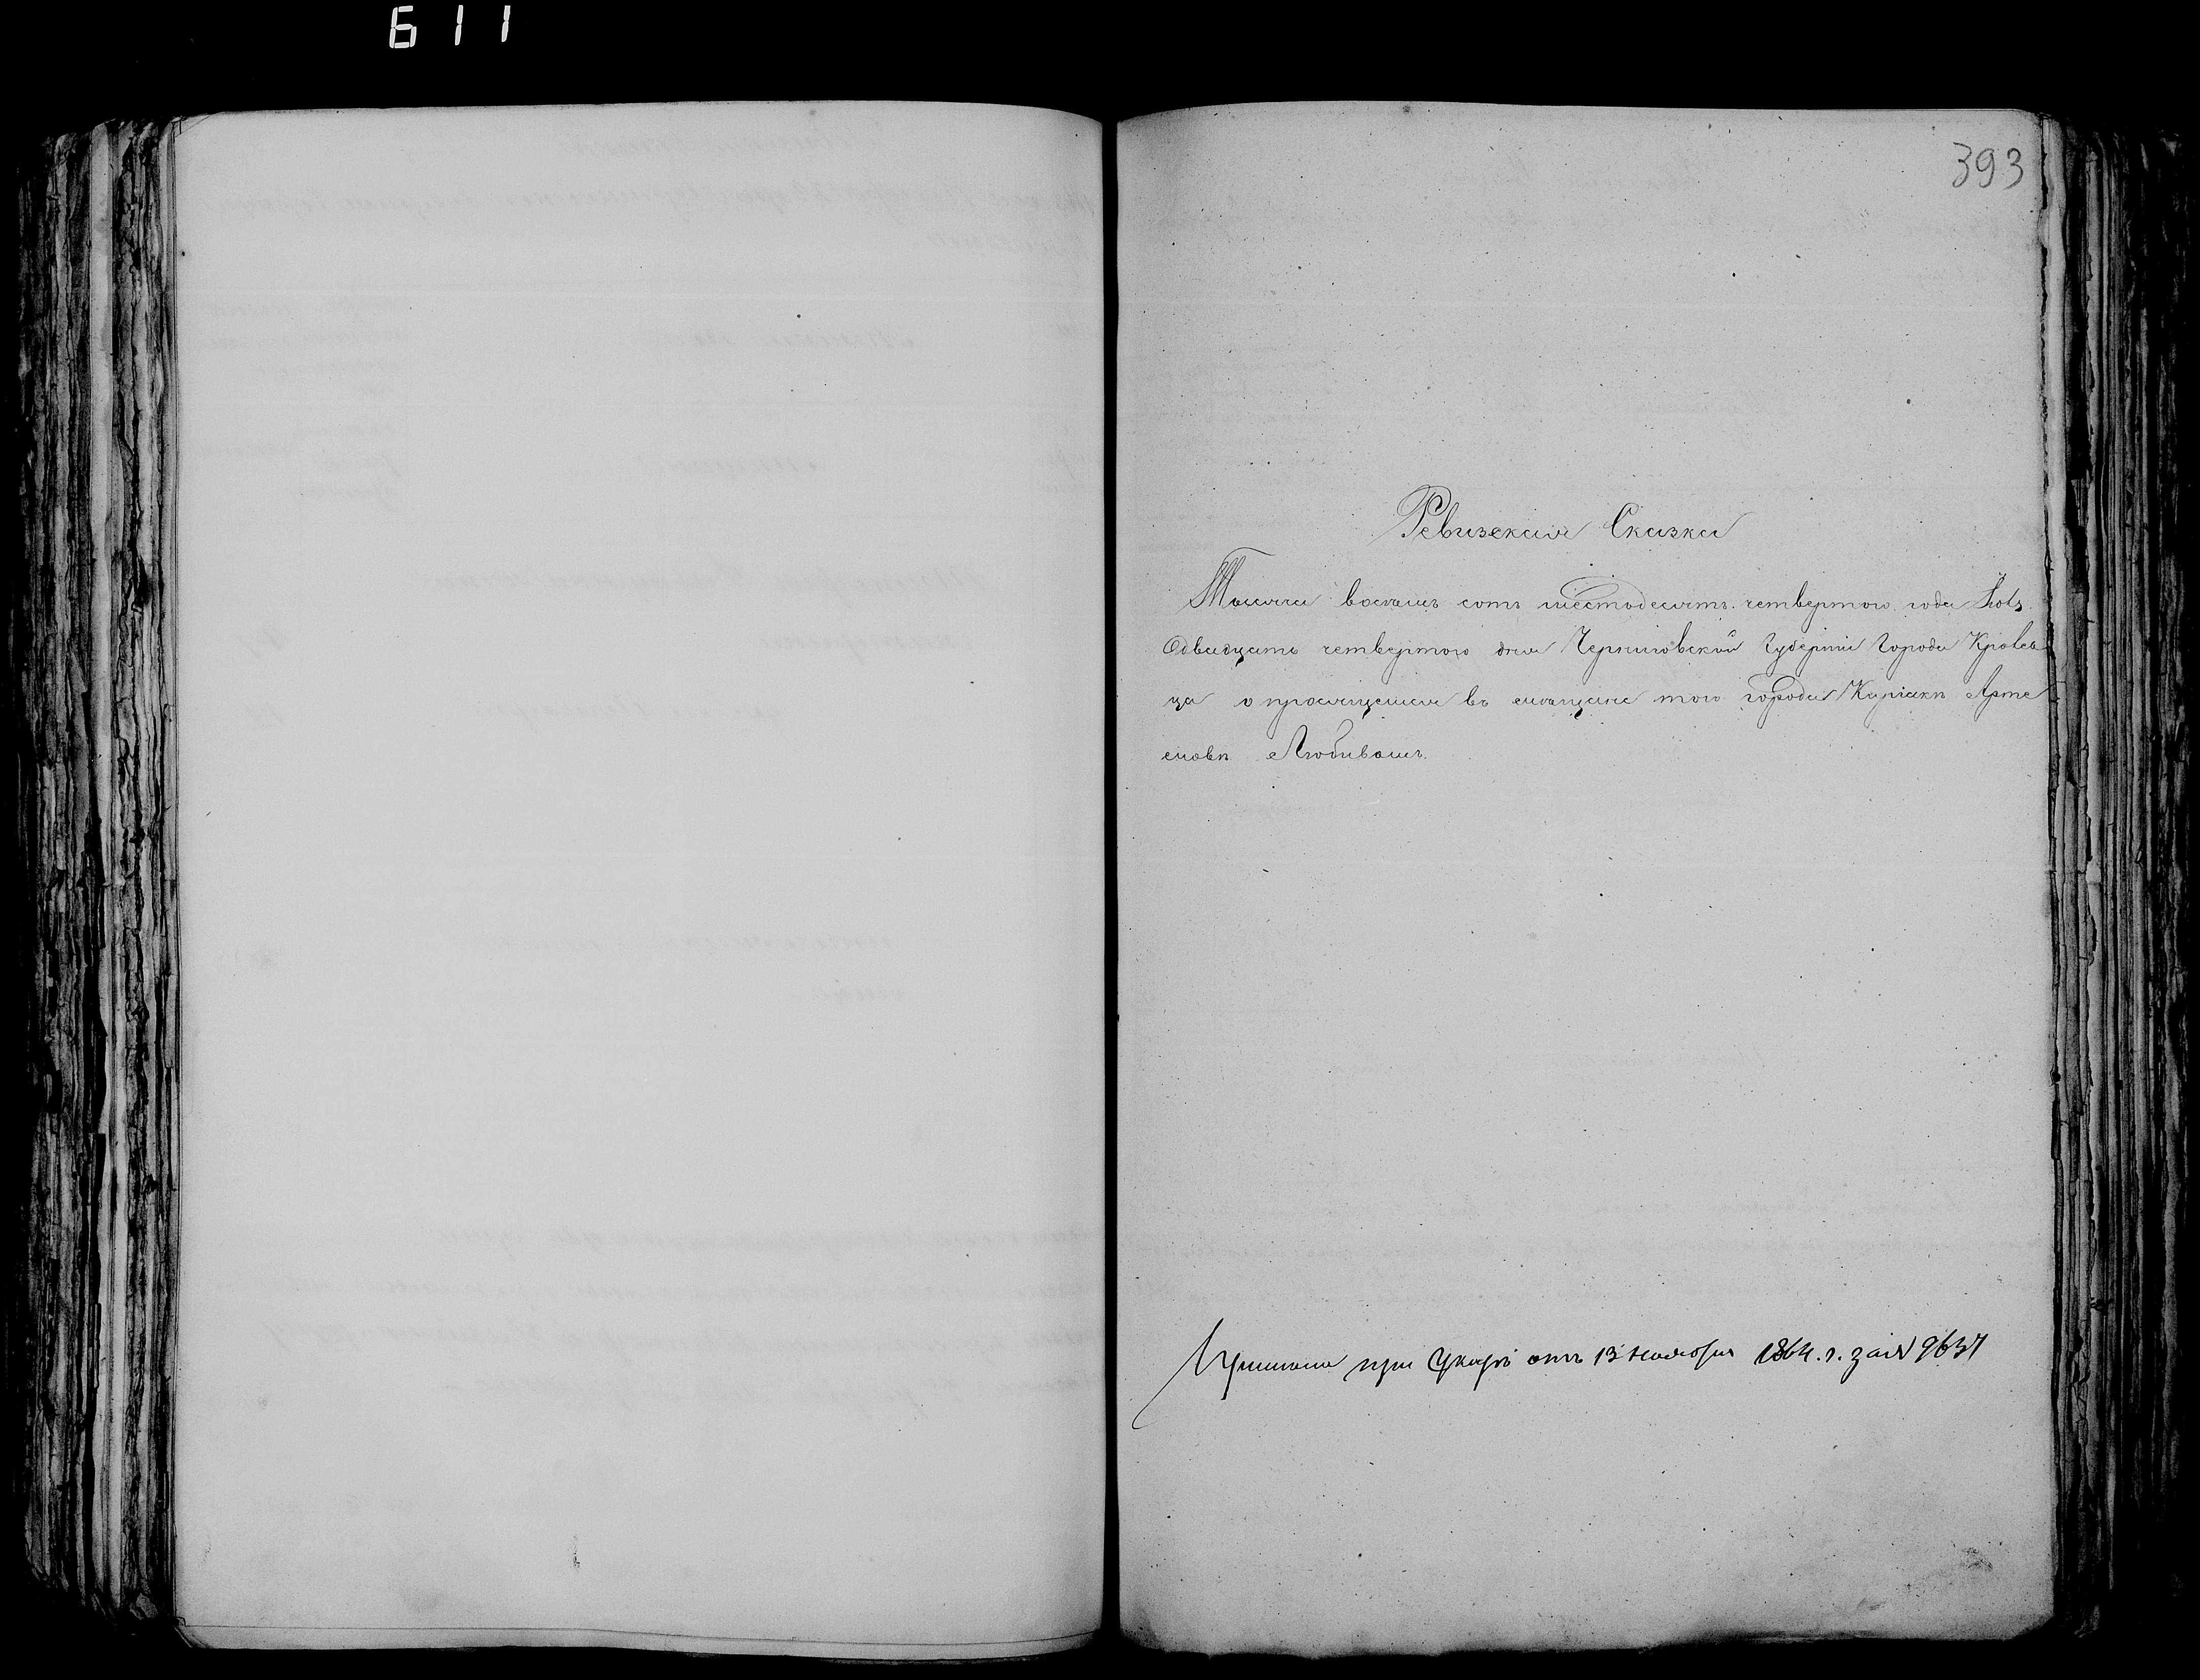 611
393
Ревизская Сказка
Тысяча восемь сотъ шестьдесятъ четвертого года
двадцать четвертого дня Черниговской Губерніи Города Кролев
ца о просящемся въ мѣщане того города Киріакѣ Арте
мовѣ Любивомъ
при Указѣ отъ 13 Ноября 1864. г. за № 9637